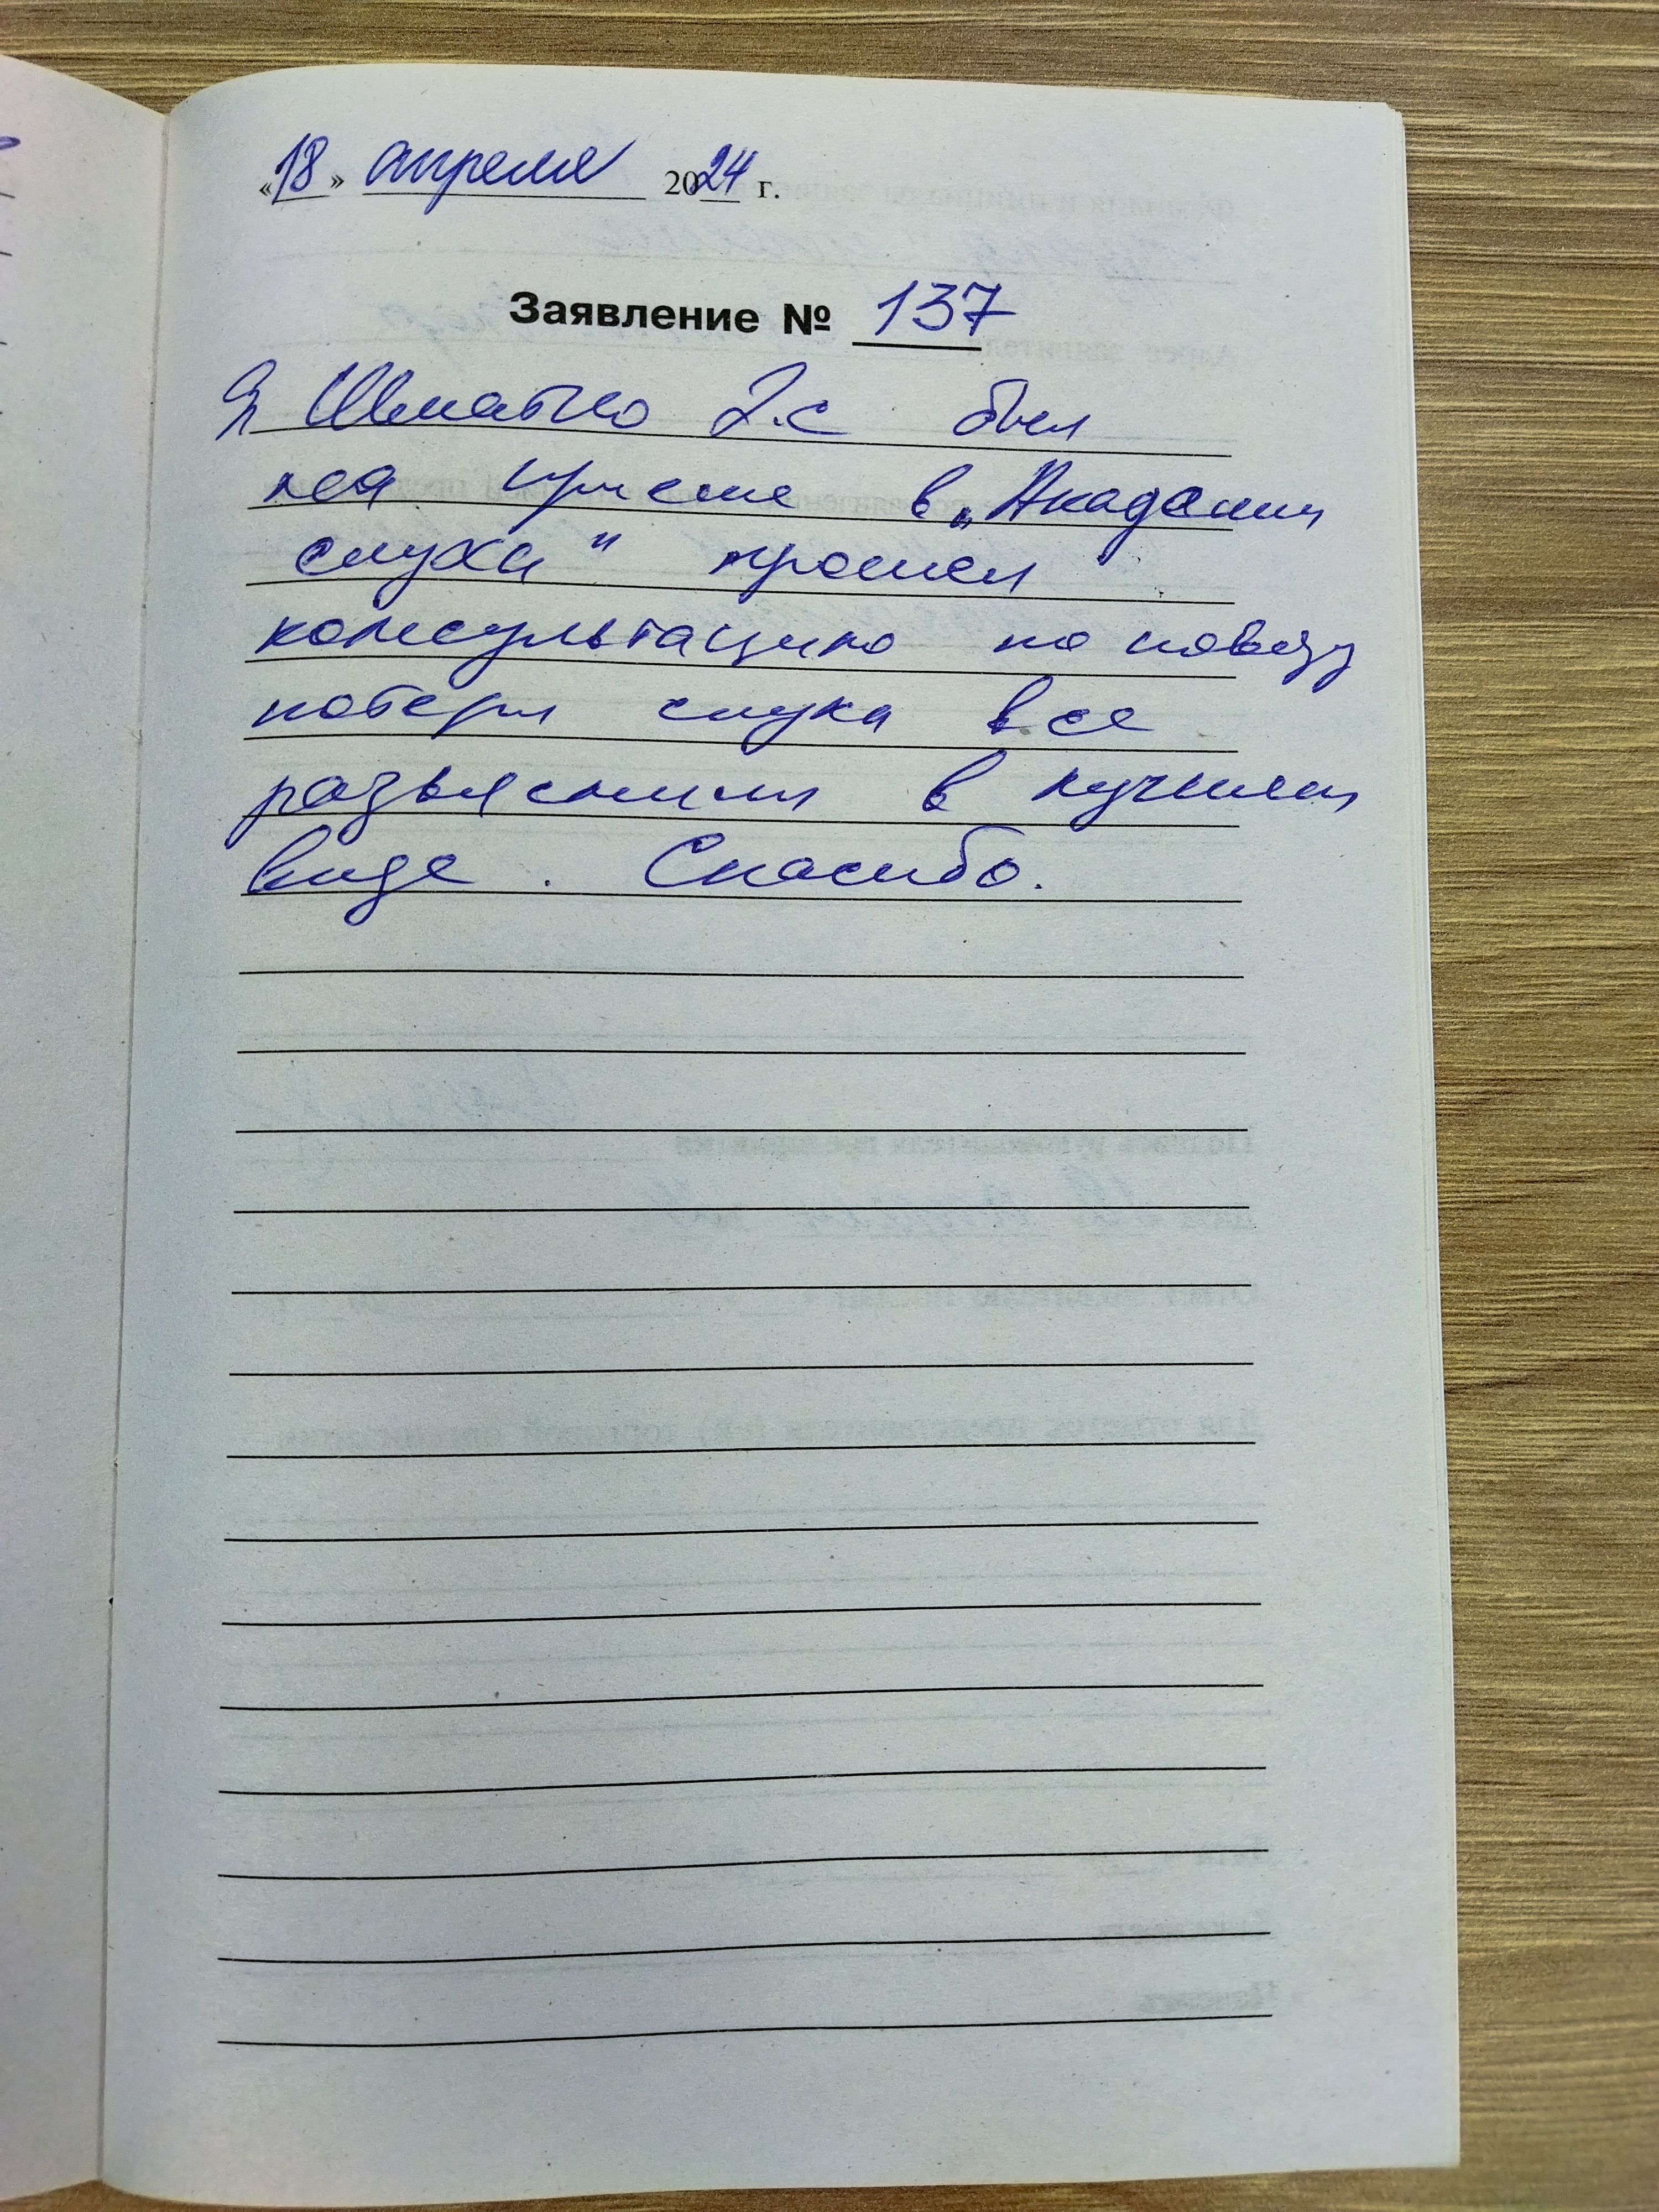 «18» апреля 2024 г.
Заявление № 137
Я Шматко Г.С был
на приеме в "Академии
слуха" прошел
консультацию по поводу
потери слуха все
разъяснили в лучшем
виде. Спасибо.